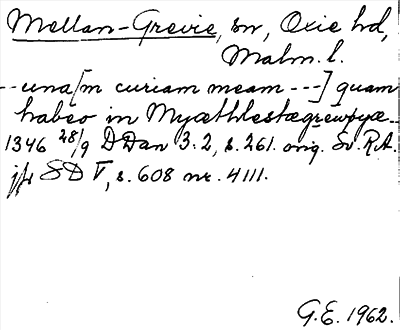 Mellan-Grevie, sn, Oxie hd,
Malm. l.
--una[m curiam meam ---] quam
habeo in Myæthlestægrewpyæ--
1346 28/9 DDan 3.2, s. 261. orig. Sv. R.A.
jfr SD V, s. 608 nr. 4111.
G.E. 1962.